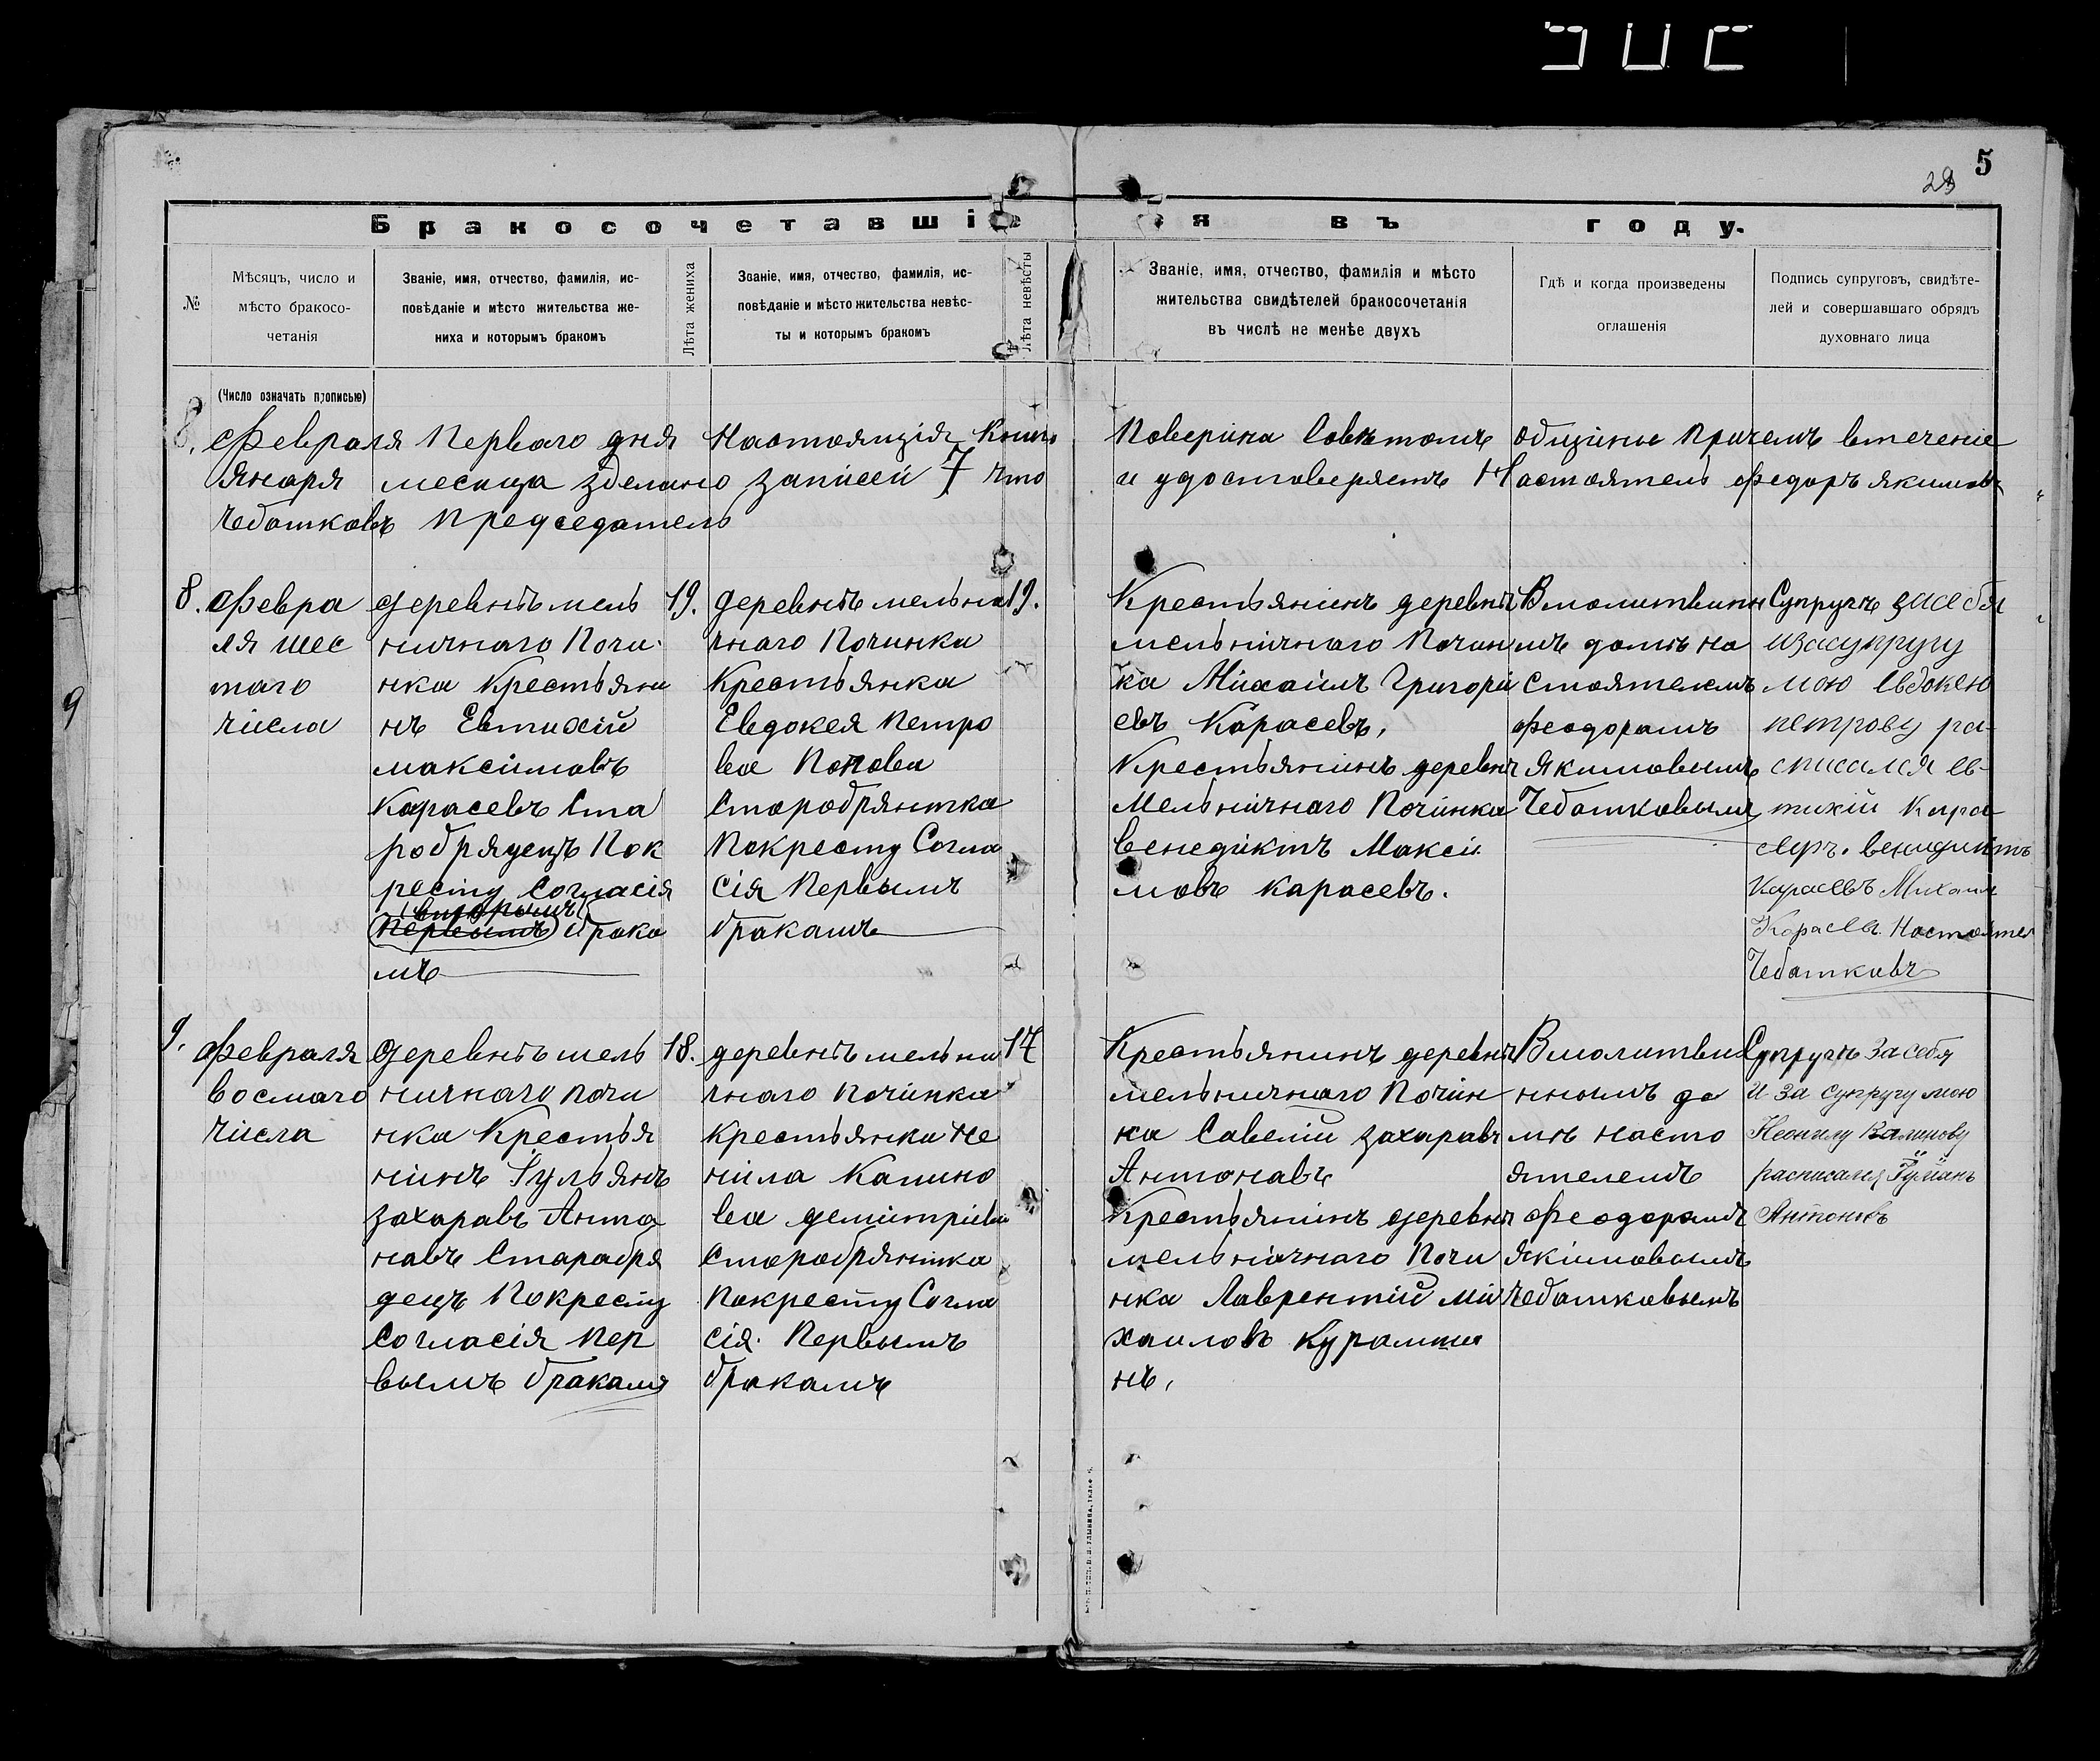 5
29
Бракосочетавшіеся въ году.
№
Мѣсяцъ, число и
мѣсто бракосо-
четанія
Званіе, имя, отчество, фамилія, ис-
повѣданіе и мѣсто жительства же-
ниха и которымъ бракомъ
Лѣта жениха
Званіе, имя, отчество, фамилія, ис-
повѣданіе и мѣсто жительства невѣс-
ты и которымъ бракомъ
Лѣта невѣсты
Званіе, имя, отчество, фамилія и мѣсто
жительства свидѣтелей бракосочетанія
въ числѣ не менѣе двухъ
Гдѣ и когда произведены
оглашенія
Подпись супруговъ, свидѣте-
лей и совершавшаго обрядъ
духовнаго лица
(Число означать прописью)
Февраля Перваго дня Настоящія Книга Поверина Советомъ Общины Причемъ втеченіе
Января месяца зделано записей 7 что и удостоверяетъ Настоятель Федоръ Якимовъ
Чебатковъ Председатель
8.
Февра
ля шес
таго
числа
деревнѣ мель
ничнаго Почи
нка Крестьяни
нъ Евтихій
максимовъ
Карасевъ Ста
робрядецъ Пок
ресту Согласія
вторымъ
Первымъ брака
мъ
19.
деревнѣ мельни
чнаго Починка
Крестьянка
Евдокея Петро
ва Попова
Старобрянтка
Покресту Согла
сія Первымъ
бракамъ
19.
Крестьянинъ деревнѣ
мельничнаго Почин
ка Михаилъ Григори
евъ Карасевъ,
Крестьянинъ деревнѣ
Мельничнаго Починка
Венедиктъ Макси
мовъ Карасевъ.
Вмолитвинн
мъ доме на
стоятелемъ
Феодорамъ
Якимовымъ
Чебатковымъ
Супругъ засебя
изасупругу
мою Евдокею
петрову ра-
списался ев-
тихій Кара
севъ. Венидиктъ
Карасевъ Михаил
Карасевъ Настоятел
Чебатковъ
9.
Февраля
восмаго
числа
деревнѣ мель
ничнаго почи
нка Крестья
нинъ Iульянъ
Захаравъ Анта
навъ Старабря
децъ Покресту
Согласія Пер
вымъ бракамъ
18.
деревнѣ мельни
чнаго Починка
Крестьянка Не
нила Калино
ва демитріева
Старобрянтка
Покресту Согла
сія. Первымъ
бракамъ
17
Крестьянинъ деревнѣ
мельничнаго Почин
ка Савелiи Захаравъ
Антонавъ
Крестьянинъ деревнѣ
мельничнаго Почи
нка Лаврентій Ми
хаиловъ Курамши
нъ,
Вмолитви
нномъ до
мѣ насто
ятелемъ
Феодорамъ
Якимовымъ
Чебатковымъ
Супругъ За себя
и за супругу мою
Неонилу Калинову
расписался Iулiанъ
Антоновъ
9